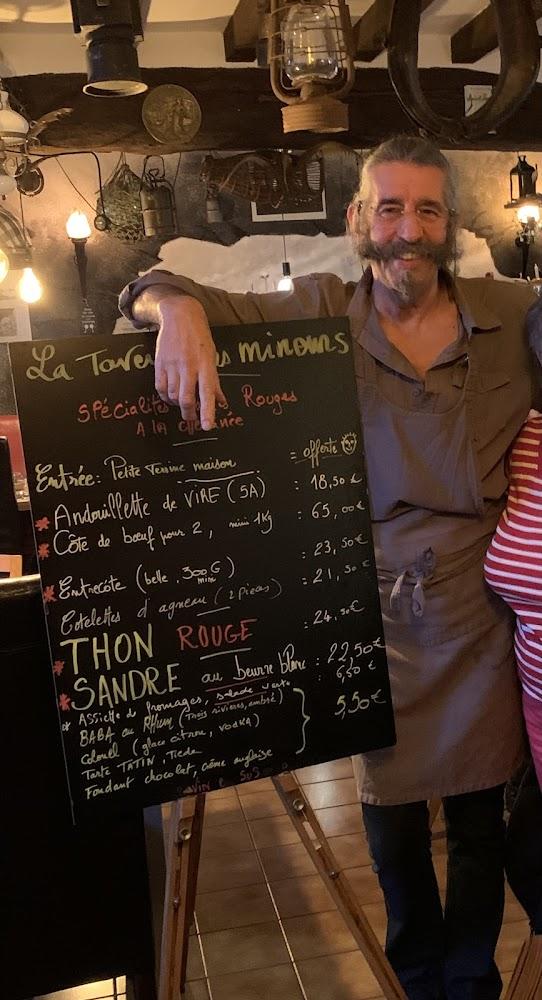 La Taver ns minours
Spécialités Rouges
A la cheminée
Entrée: Petite Terrine maison = offerte
* Andouillette de VIRE (5A) : 18,50 €
* Côte de bœuf pour 2, mini 1Kg : 65,00€
* Entrecôte (belle, 300G mini) : 23,50€
Cotelettes d'agneau (2 pièces) : 21,50€
* THON ROUGE : 24,50€
* SANDRE au beurre blanc : 22,50€
* Assiette de fromages, salade verte : 6,50€
BABA au Rhum (Trois rivières, ambré)
Colonel (glace citron, vodka) 5,50€
Tarte TATIN, Tiède
Fondant chocolat, crème anglaise